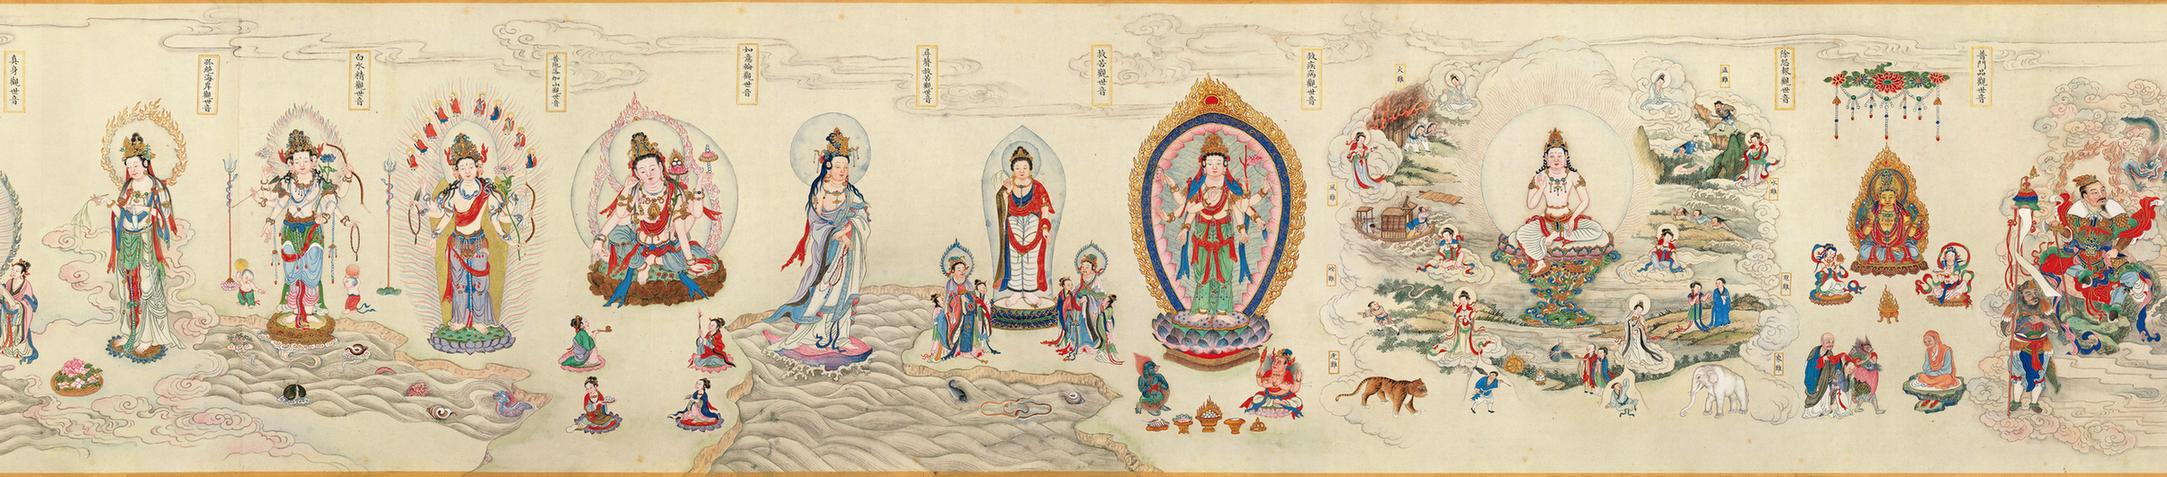 普門品觀世音
除怨報觀世音
水難
象難
火難
風難
虎難
救疾病觀世音
救苦觀世音
尋聲救苦觀世音
如意輪觀世音
普陀落伽山觀世音
白水精觀世音
孤絕海岸觀世音
真身觀世音